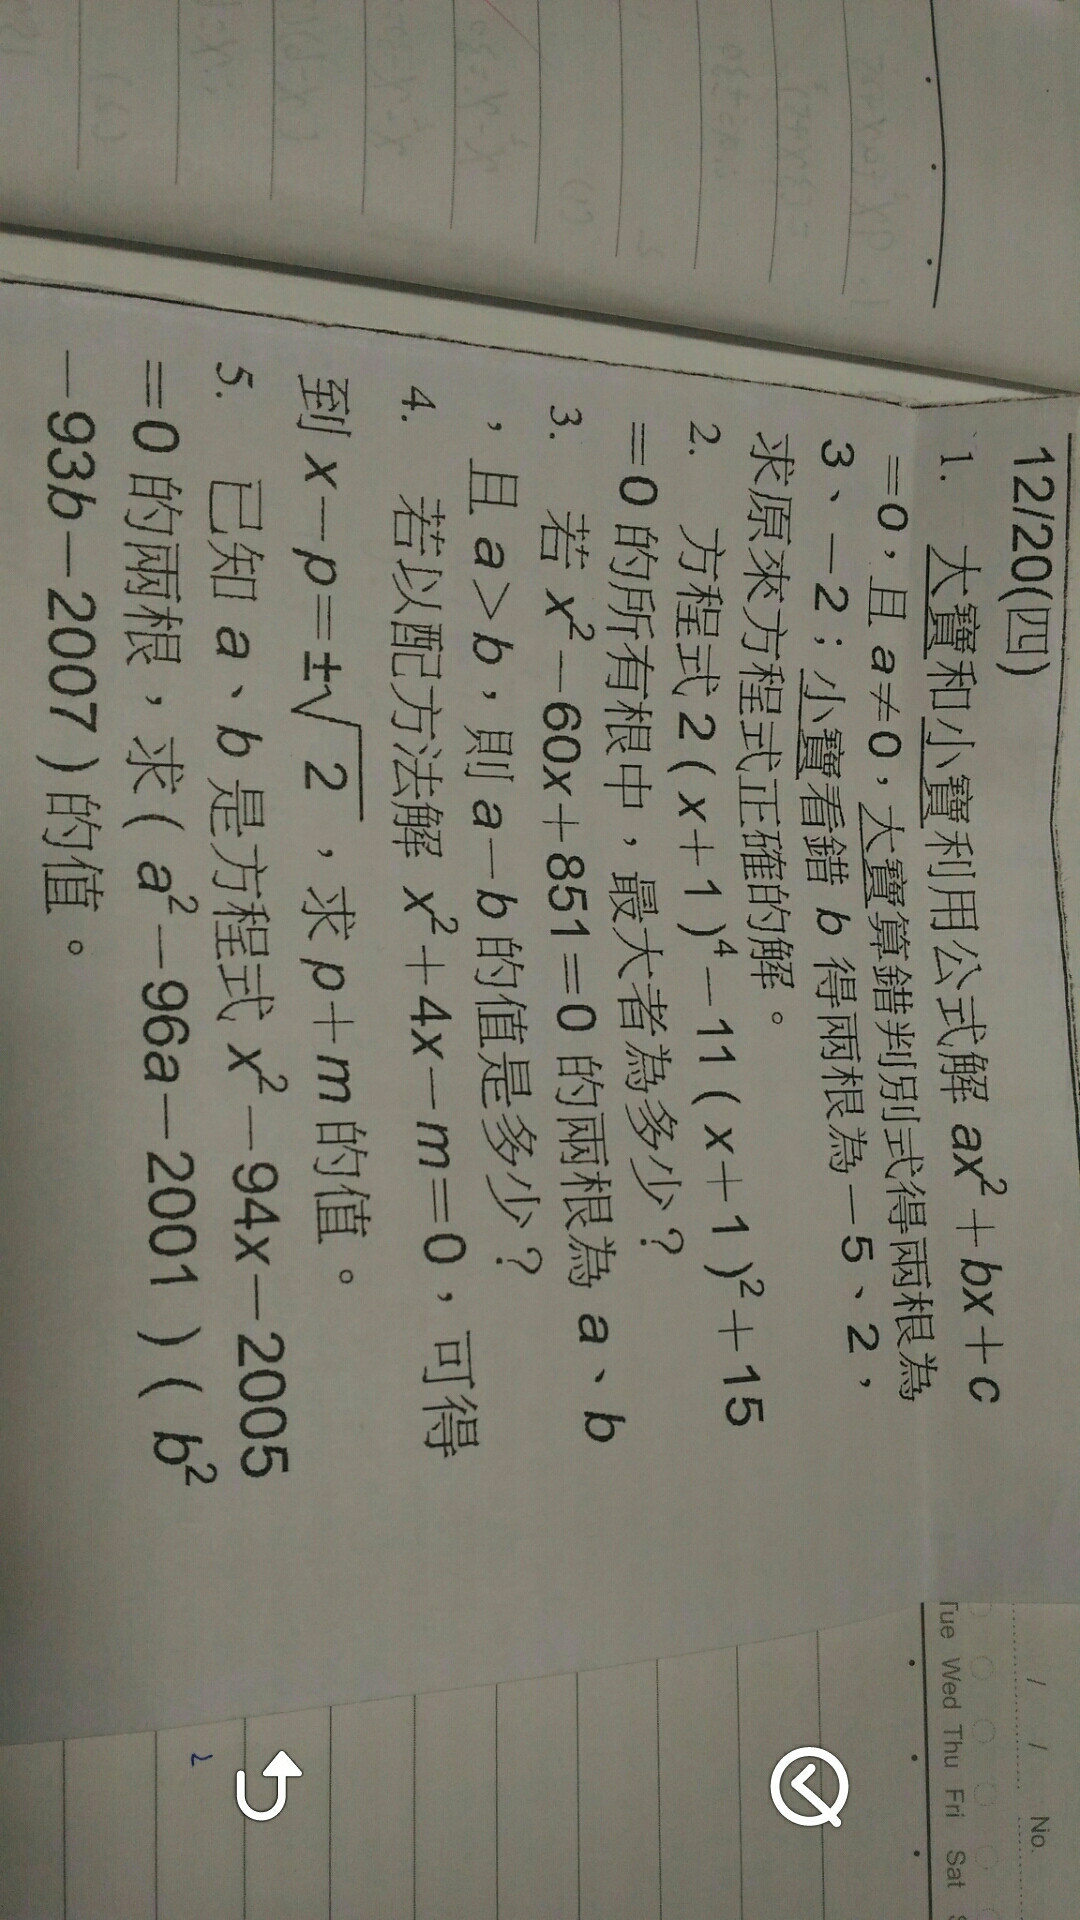 12/20(四)
1. 大寶和小寶利用公式解 ax²+bx+c
=0,且 a≠0,大寶算錯判別式得兩根為
3、-2;小寶看錯 b 得兩根為-5、2,
求原來方程式正確的解。
2. 方程式 2(x+1)⁴-11(x+1)²+15
=0 的所有根中,最大者為多少?
3. 若 x²-60x+851=0 的兩根為 a、b
,且 a>b,則 a-b 的值是多少?
4. 若以配方法解 x²+4x-m=0,可得
到 x-p=±√2,求 p+m 的值。
5. 已知 a、b 是方程式 x²-94x-2005
=0 的兩根,求(a²-96a-2001)(b²
-93b-2007)的值。
/ / No.
Tue Wed Thu Fri Sat